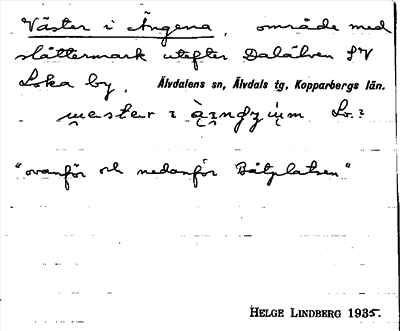 Väster i Ängena, område med
slåttermark utefter Dalälven SV
Loka by, Älvdalens sn, Älvdals tg, Kopparbergs län.
Lo.:
"ovanför och nedanför Båtplatsen"
HELGE LINDBERG 1935.